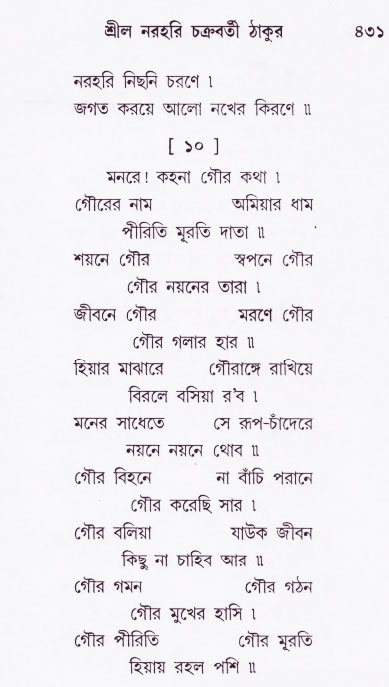 শ্রীল নরহরি চক্রবর্তী ঠাকুর ৪৩১
নরহরি নিছনি চরণে ৷
জগত করয়ে আলো নখের কিরণে ॥
[ ১০ ]
মনরে! কহনা গৌর কথা ৷
গৌরের নাম অমিয়ার ধাম
পীরিতি মূরতি দাতা ॥
শয়নে গৌর স্বপনে গৌর
গৌর নয়নের তারা ৷
জীবনে গৌর মরণে গৌর
গৌর গলার হার ॥
হিয়ার মাঝারে গৌরাঙ্গে রাখিয়ে
বিরলে বসিয়া র'ব ৷
মনের সাধেতে সে রূপ-চাঁদেরে
নয়নে নয়নে থোব ॥
গৌর বিহনে না বাঁচি পরানে
গৌর করেছি সার ৷
গৌর বলিয়া যাউক জীবন
কিছু না চাহিব আর ॥
গৌর গমন গৌর গঠন
গৌর মুখের হাসি ৷
গৌর পীরিতি গৌর মূরতি
হিয়ায় রহল পশি ॥